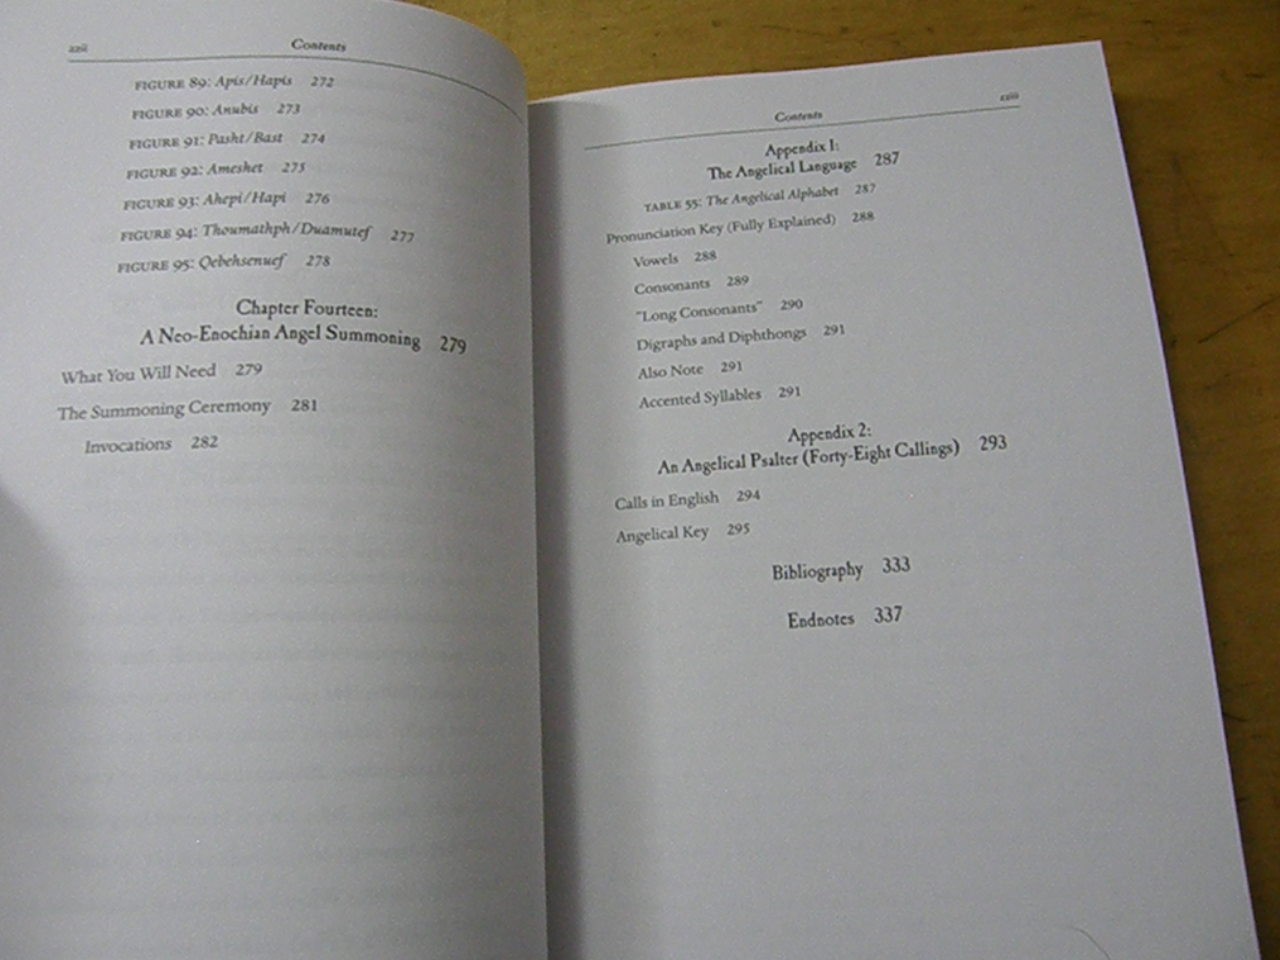 xxii
Contents
FIGURE 89: Apis/Hapis 272
FIGURE 90: Anubis 273
FIGURE 91: Pasht/Bast 274
FIGURE 92: Ameshet 275
FIGURE 93: Ahepi/Hapi 276
FIGURE 94: Thoumathph/Duamutef 277
FIGURE 95: Qebehsenuef 278
Chapter Fourteen:
A Neo-Enochian Angel Summoning 279
What You Will Need 279
The Summoning Ceremony 281
Invocations 282
Contents
xxiii
Appendix 1:
The Angelical Language 287
TABLE 55: The Angelical Alphabet 287
Pronunciation Key (Fully Explained) 288
Vowels 288
Consonants 289
"Long Consonants" 290
Digraphs and Diphthongs 291
Also Note 291
Accented Syllables 291
Appendix 2:
An Angelical Psalter (Forty-Eight Callings) 293
Calls in English 294
Angelical Key 295
Bibliography 333
Endnotes 337